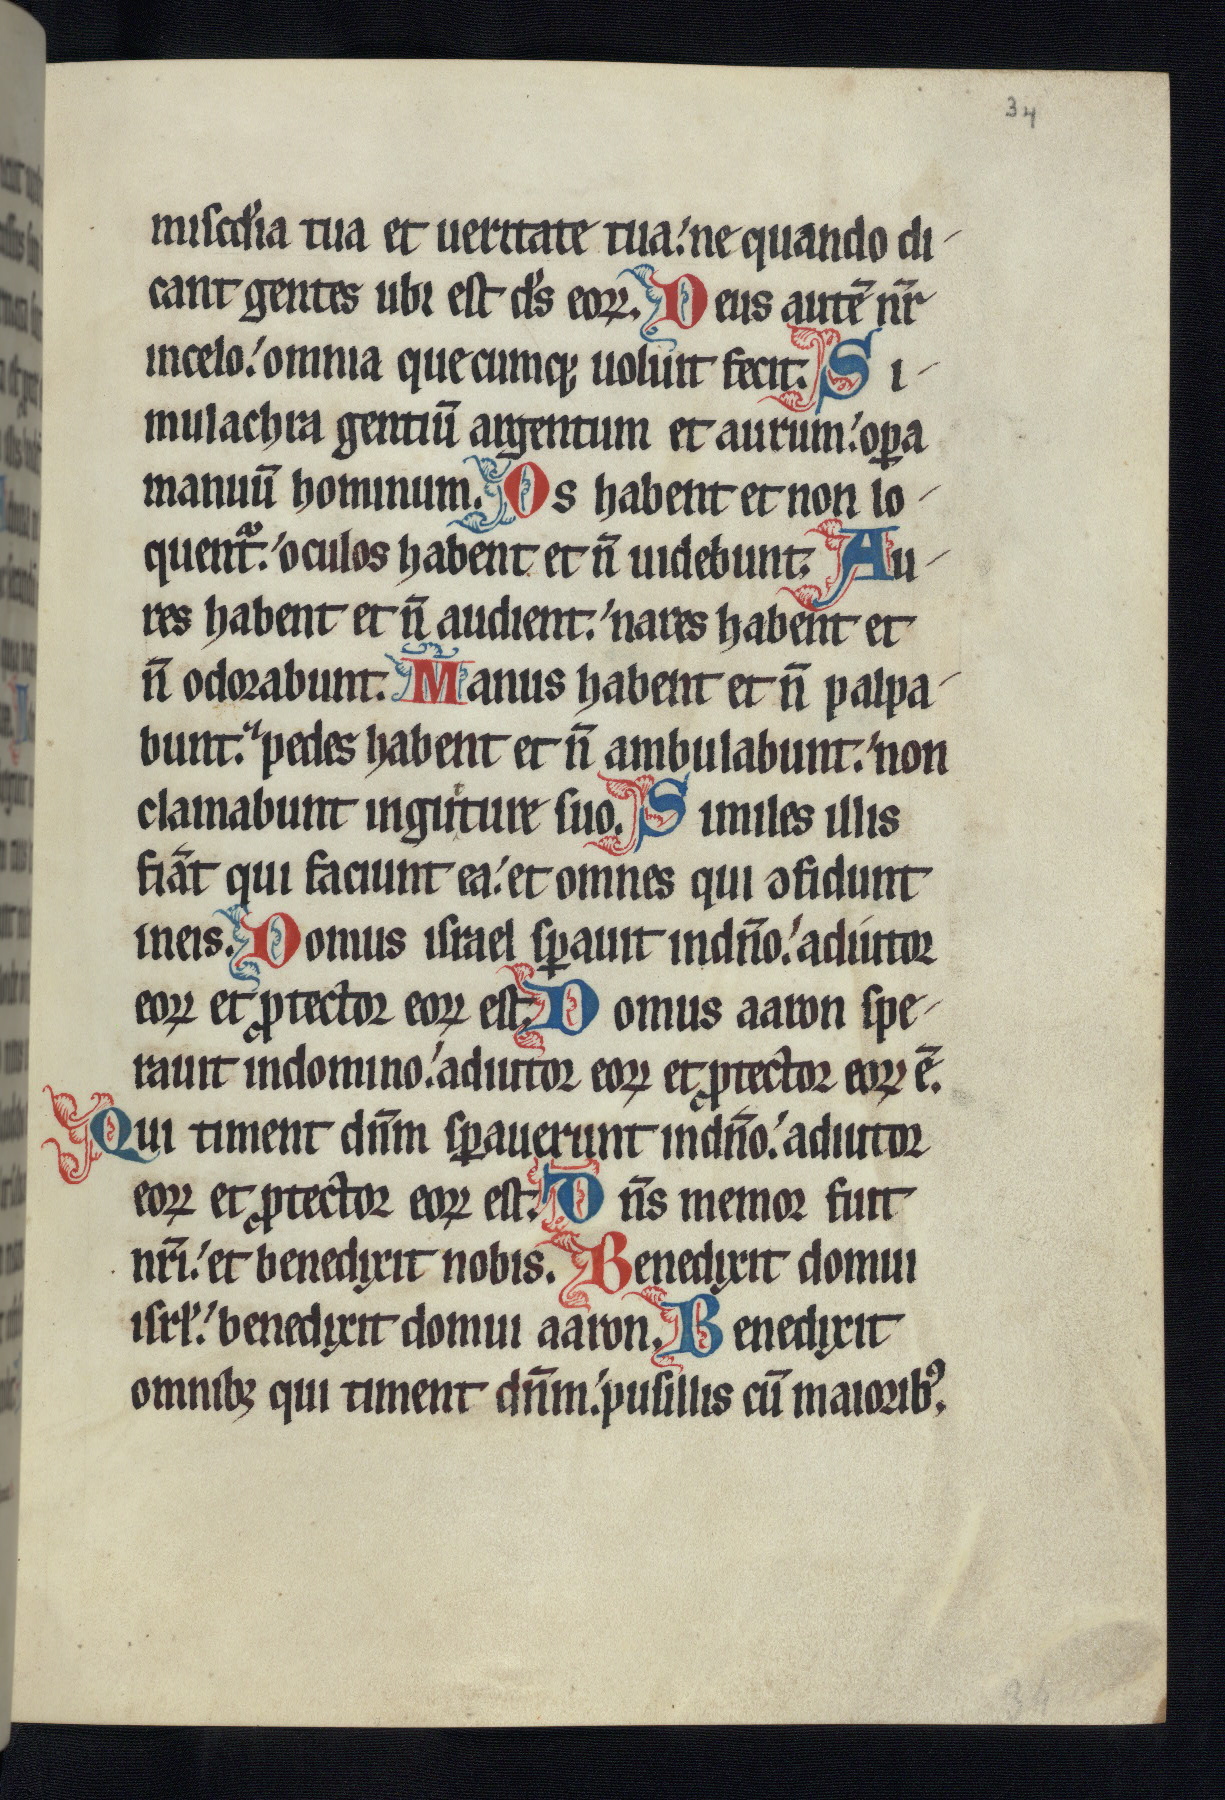 34
misc̄dia tua et ueritate tua:' ne quando di-
cant gentes ubi est ds̄ eoꝝ. Deus autē nr̄
in celo:' omnia quecumqꝫ uoluit fecit. Si-
mulachra gentiū argentum et aurum:' oꝑa
manuū hominum. Os habent et non lo-
quent᷑:' oculos habent et n̄ uidebunt. Au-
res habent et n̄ audient:' nares habent et
n̄ odorabunt. Manus habent et n̄ palpa-
bunt:' pedes habent et n̄ ambulabunt:' non
clamabunt in guture suo. Similes illis
fiāt qui faciunt ea:' et omnes qui ꝯfidunt
in eis. Domus israel sꝑauit in dn̄o:' adiutor
eoꝝ et ꝓtector eoꝝ est. Domus aaron spe-
rauit in domino:' adiutor eoꝝ et ꝓtector eoꝝ ē.
Qui timent dn̄m sꝑauerunt in dn̄o:' adiutor
eoꝝ et ꝓtector eoꝝ est. Dn̄s memor fuit
nr̄i:' et benedixit nobis. Benedixit domui
isrl̄:' benedixit domui aaron. Benedixit
omnibꝫ qui timent dn̄m:' pusillis cū maioribꝰ.
34